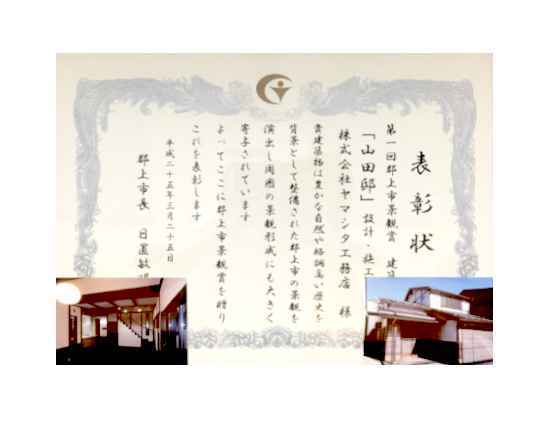 表彰状
第一回郡上市景観賞 建
「山田邸」設計・施工
株式会社ヤマシタ工務店 様
貴建築物は豊かな自然や格調高い歴史を
背景として整備された郡上市の景観を
演出し周囲の景観形成にも大きく
寄与されています
よってここに郡上市景観賞を贈り
これを表彰します
平成二十五年三月二十五日
郡上市長 日置敏